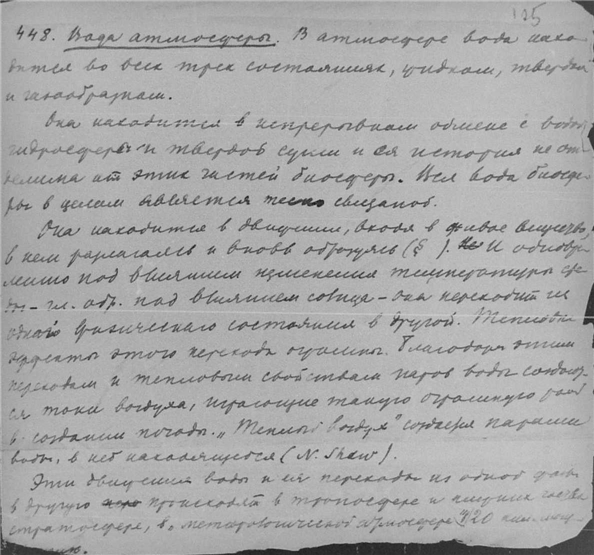 125
448. Вода атмосферы. В атмосфере вода нахо-
дится во всех трех состояниях, жидком, твердом
и газообразном.
Она находится в непрерывном обмене с водой
гидросферы и твердой суши и ея история не от-
делима от этих частей биосферы. Вся вода биосфе-
ры в целом является тесно связаной.
Она находится в движении, входя в живое вещество,
в нем разлагаясь и вновь образуясь (§ ). И одновре-
менно под влиянием изменения температуры сре-
ды - гл. обр. под влиянием солнца - она переходит из
одного физического состояния в другой. Тепловые
эффекты этого перехода огромны. Благодаря этим
переходам и тепловым свойствам паров воды создают-
ся токи воздуха, играющие такую огромную роль
в создании погоды. „Теплый воздух" создается парами
воды, в нем находящемся (N. Shaw).
Эти движения воды и ея переходы из одной фазы
в другую происходят в тропосфере и нижних частях
стратосфере, в метеорологической атмосфере 20